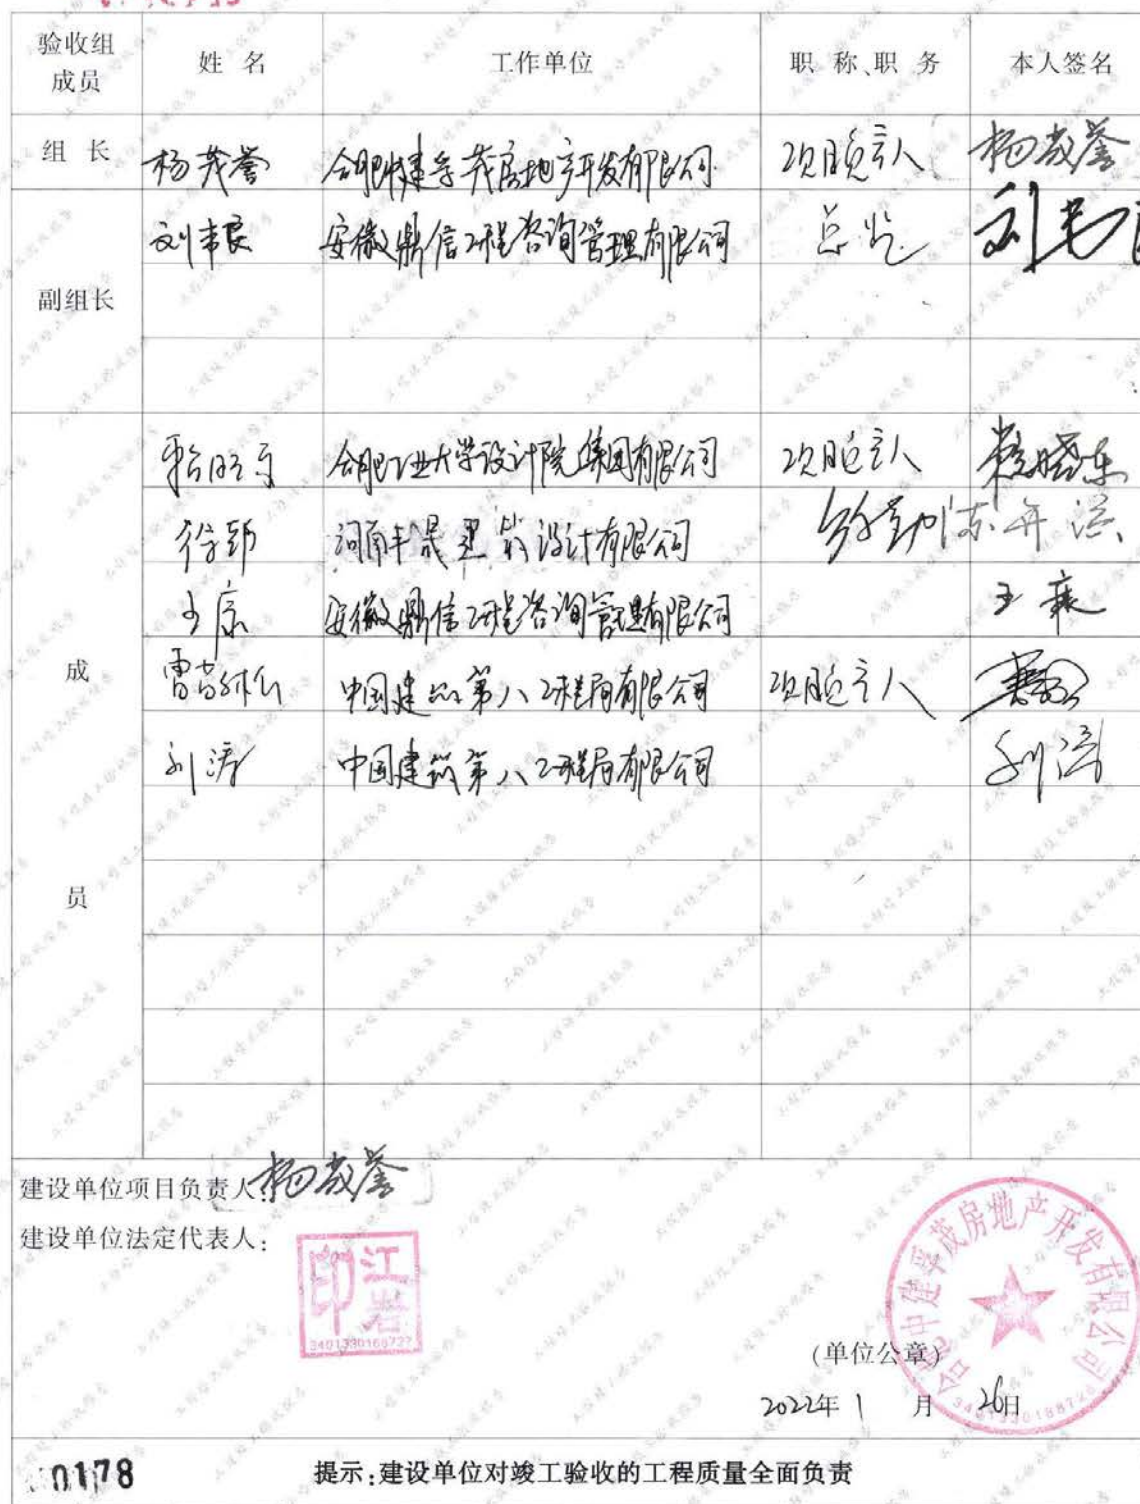 验收组成员 姓 名 工作单位 职 称、职 务 本人签名
组 长 杨茂誉 合肥中建孚茂房地产开发有限公司 项目负责人 杨茂誉
刘韦良 安徽鼎信工程咨询管理有限公司 总监
副组长
合肥工业大学设计院集团有限公司 项目负责人
徐勤 河南丰晟建筑设计有限公司 徐勤
王康 安徽鼎信工程咨询管理有限公司 王康
成 中国建筑第八工程局有限公司 项目负责人
刘涛 中国建筑第八工程局有限公司 刘涛
员
建设单位项目负责人:杨茂誉
建设单位法定代表人:
江岩印
3401330166727
合肥中建孚茂房地产开发有限公司
(单位公章)
2022年1月26日
0178 提示:建设单位对竣工验收的工程质量全面负责